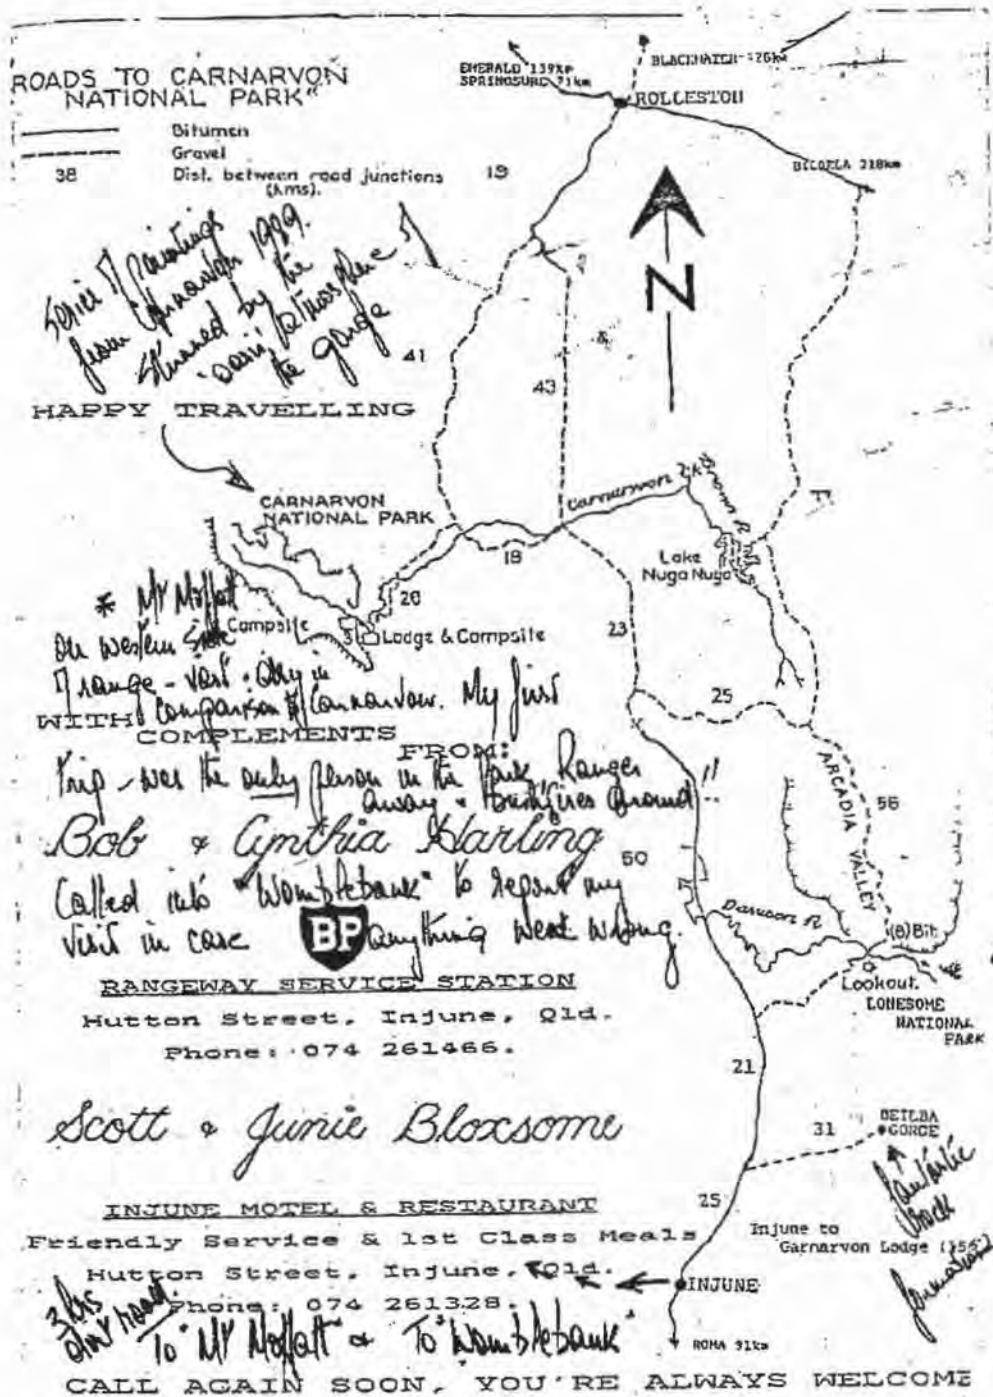 ROADS TO CARNARVON
NATIONAL PARK"
Bitumen
Gravel
38 Dist. between road junctions
(kms).
EMERALD 139km
SPRINGSURE 71km
BLACKWATER 126km
ROLLESTON
BILOELA 218km
19
N
Series of paintings
from Carnarvon 1989.
Stunned by the
"oasis" atmosphere of
the gorge
41
43
HAPPY TRAVELLING
CARNARVON
NATIONAL PARK
Carnarvon Ck
Brown R
Lake
Nuga Nuga
18
20
23
25
Campsite
Lodge & Campsite
* Mt Moffatt
on western side
of range - vast & dry in
comparison to Carnarvon. My first
WITH
COMPLEMENTS
FROM:
trip - was the only person in the park, Ranger
away & bushfires around!!
ARCADIA VALLEY
56
Bob & Cynthia Harling
50
Called into "Womblebank" to report my
visit in case anything went wrong.
BP
Dawson R
(8) Bit.
Lookout
LONESOME
NATIONAL
PARK
RANGEWAY SERVICE STATION
Hutton Street, Injune, Qld.
Phone: 074 261466.
21
Scott & Junie Bloxsome
31
BEILBA
GORGE
fantastic
rock
formations
INJUNE MOTEL & RESTAURANT
25
Friendly Service & 1st Class Meals
Injune to
Carnarvon Lodge
Hutton Street, Injune, Qld.
INJUNE
Phone: 074 261328.
3 hrs
dirt road.
To "Mt Moffatt" & To "Womblebank"
ROMA 91km
CALL AGAIN SOON, YOU'RE ALWAYS WELCOME